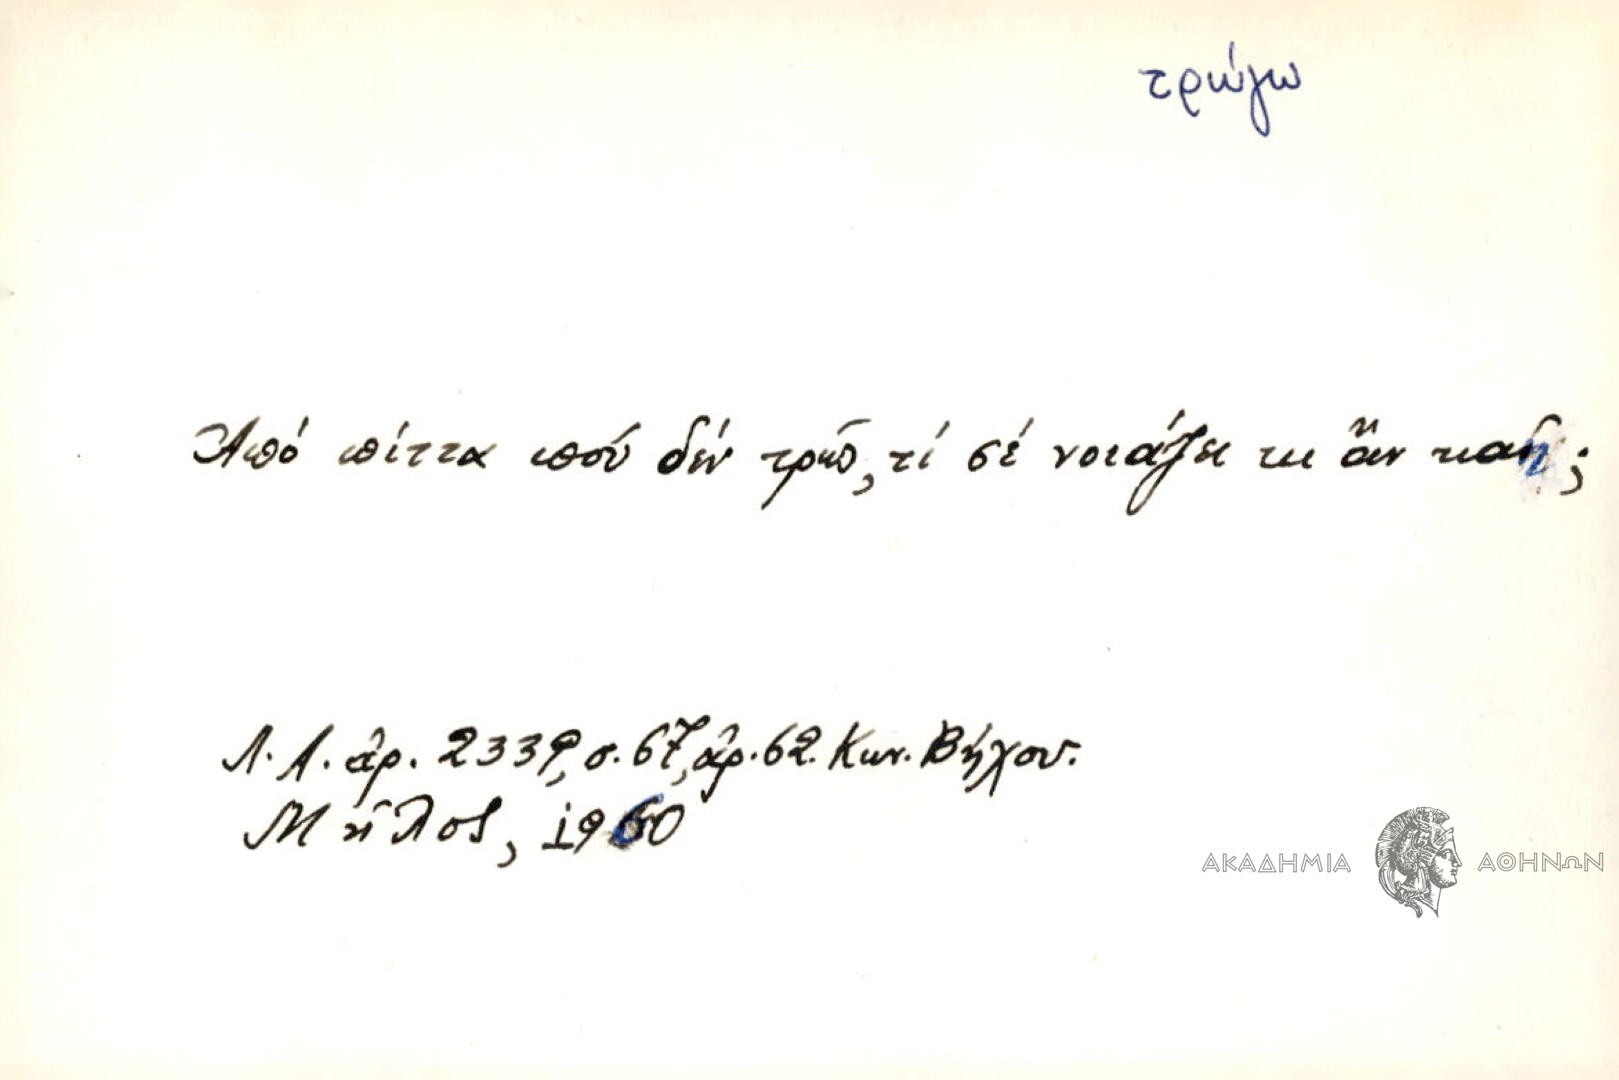 τρώγω
Ἀπό πίττα πού δέν τρῶς, τί σέ νοιάζει κι ἄν καῆ;
Λ.Α. ἀρ. 2339, σ. 67, ἀρ. 62. Κων. Βήχου.
Μῆλος, 1960
ΑΚΑΔΗΜΙΑ ΑΘΗΝΩΝ